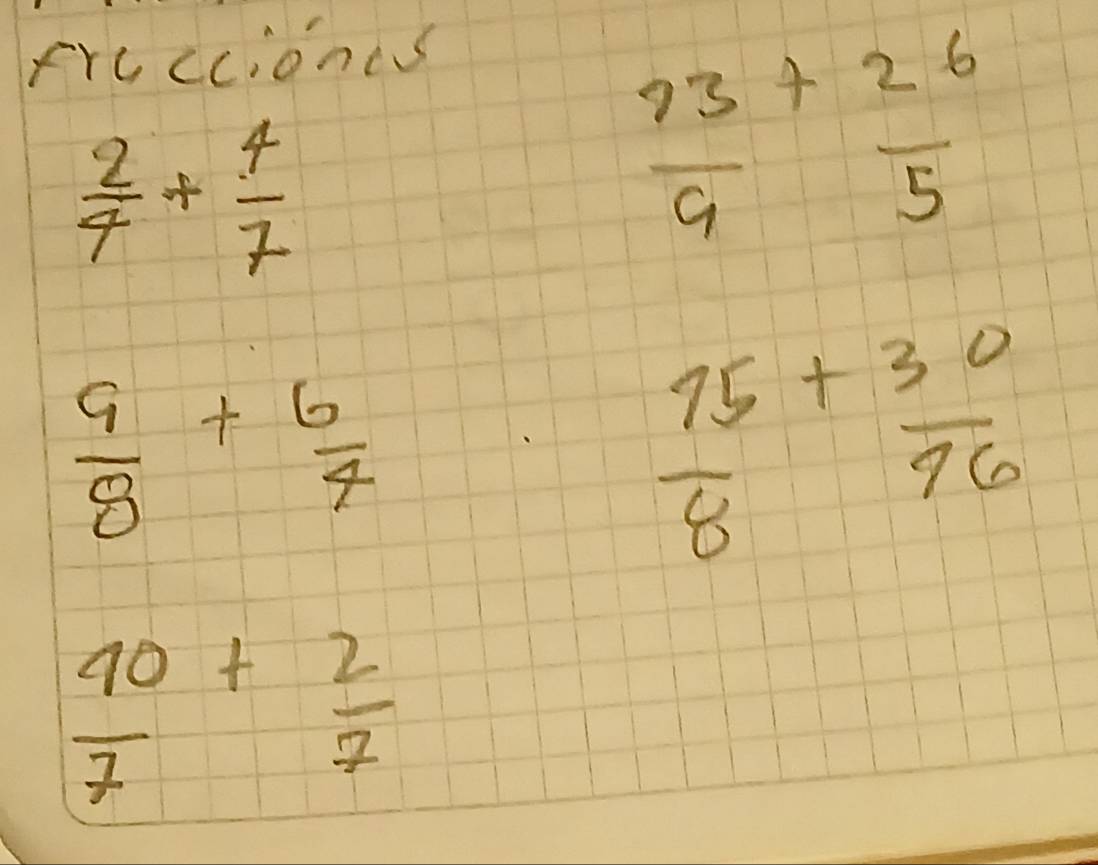 fracciónes
2/4 + 4/7
13/9 + 26/5
9/8 + 6/4
15/8 + 30/16
10/7 + 2/7